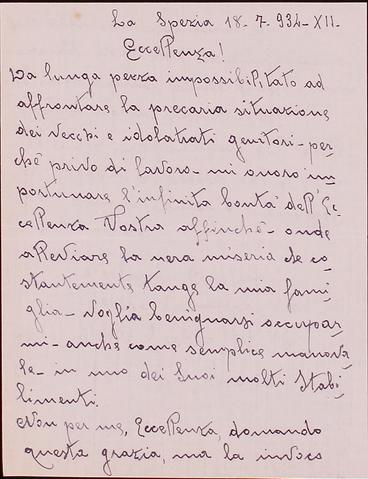 La Spezia 18-7-934-XII-
Eccellenza!
Da lunga pezza impossibilitato ad
affrontare la precaria situazione
dei vecchi e idolatrati genitori- per-
chè privo di lavoro- mi onoro im-
portunare l'infinita bontà dell'Ec-
cellenza Vostra affinchè- onde
alleviare la nera miseria che co-
stantemente tange la mia fami-
glia- voglia benignarsi occupar-
mi- anche come semplice manova-
le- in uno dei Suoi molti Stabi-
limenti.
Non per me, Eccellenza, domando
questa grazia, ma la invoco